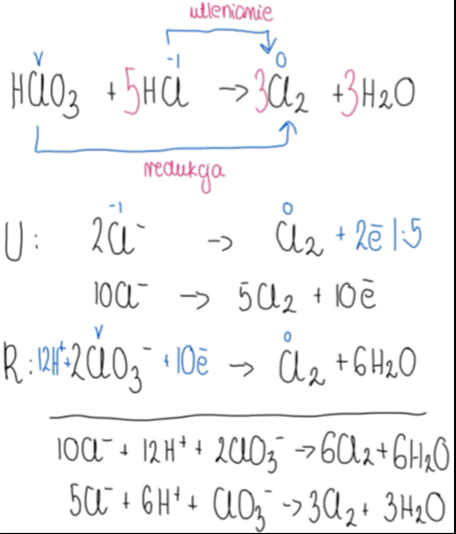 utlenianie
V -I 0
HClO₃ + 5HCl → 3Cl₂ + 3H₂O
redukcja
-I 0
U: 2Cl⁻ → Cl₂ + 2ē |·5
10Cl⁻ → 5Cl₂ + 10ē
V 0
R: 12H⁺ + 2ClO₃⁻ + 10ē → Cl₂ + 6H₂O
10Cl⁻ + 12H⁺ + 2ClO₃⁻ → 6Cl₂ + 6H₂O
5Cl⁻ + 6H⁺ + ClO₃⁻ → 3Cl₂ + 3H₂O